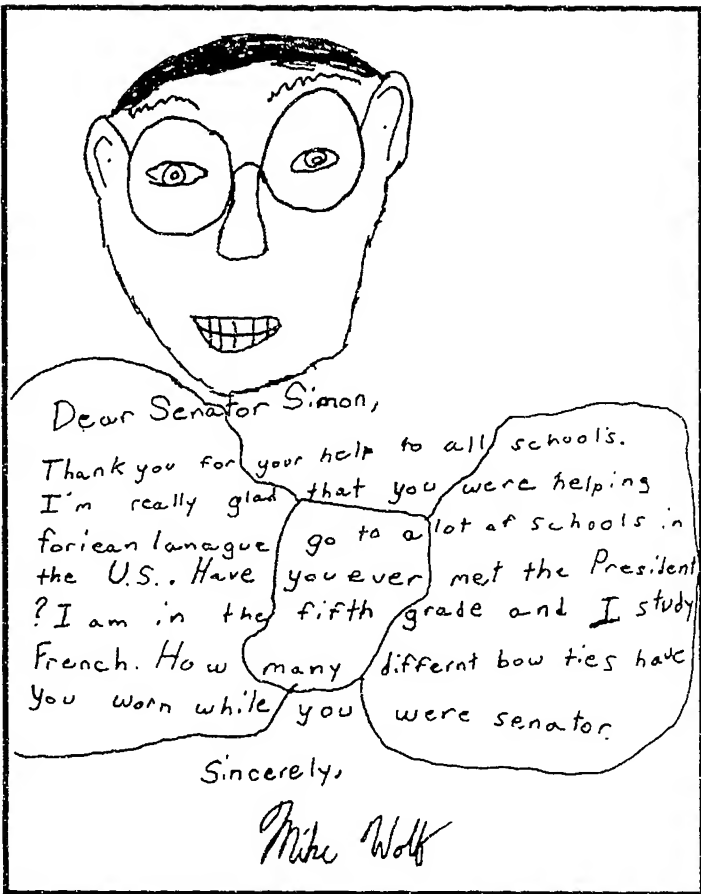 Dear Senator Simon,
Thank you for your help to all schools.
I'm really glad that you were helping
foriean lanague go to a lot of schools in
the U.S.. Have you ever met the President
? I am in the fifth grade and I study
French. How many differnt bow ties have
you worn while you were senator.
Sincerely,
Mike Wolf